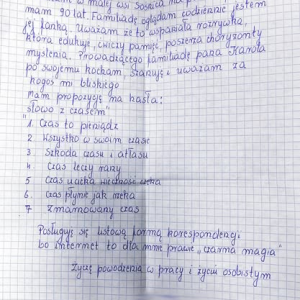 w małej wsi Sośnica
mam 90 lat. Familiadę oglądam codziennie jestem
jej fanką. Uważam że to wspaniała rozrywka,
która edukuje, ćwiczy pamięć, poszerza choryzonty
myślenia. Prowadzącego familiadę pana Karola
po swojemu kocham, szanuję i uważam za
kogoś mi bliskiego
Mam propozycję na hasła:
"słowo z czasem"
1. Czas to pieniądz
2. Wszystko w swoim czasie
3. Szkoda czasu i atłasu
4. Czas leczy rany
5. Czas ucieka wieczność czeka
6. Czas płynie jak rzeka
7. Zmarnowany czas
Posługuję się listową formą korespondencji
bo internet to dla mnie prawie "czarna magia"
Życzę powodzenia w pracy i życiu osobistym